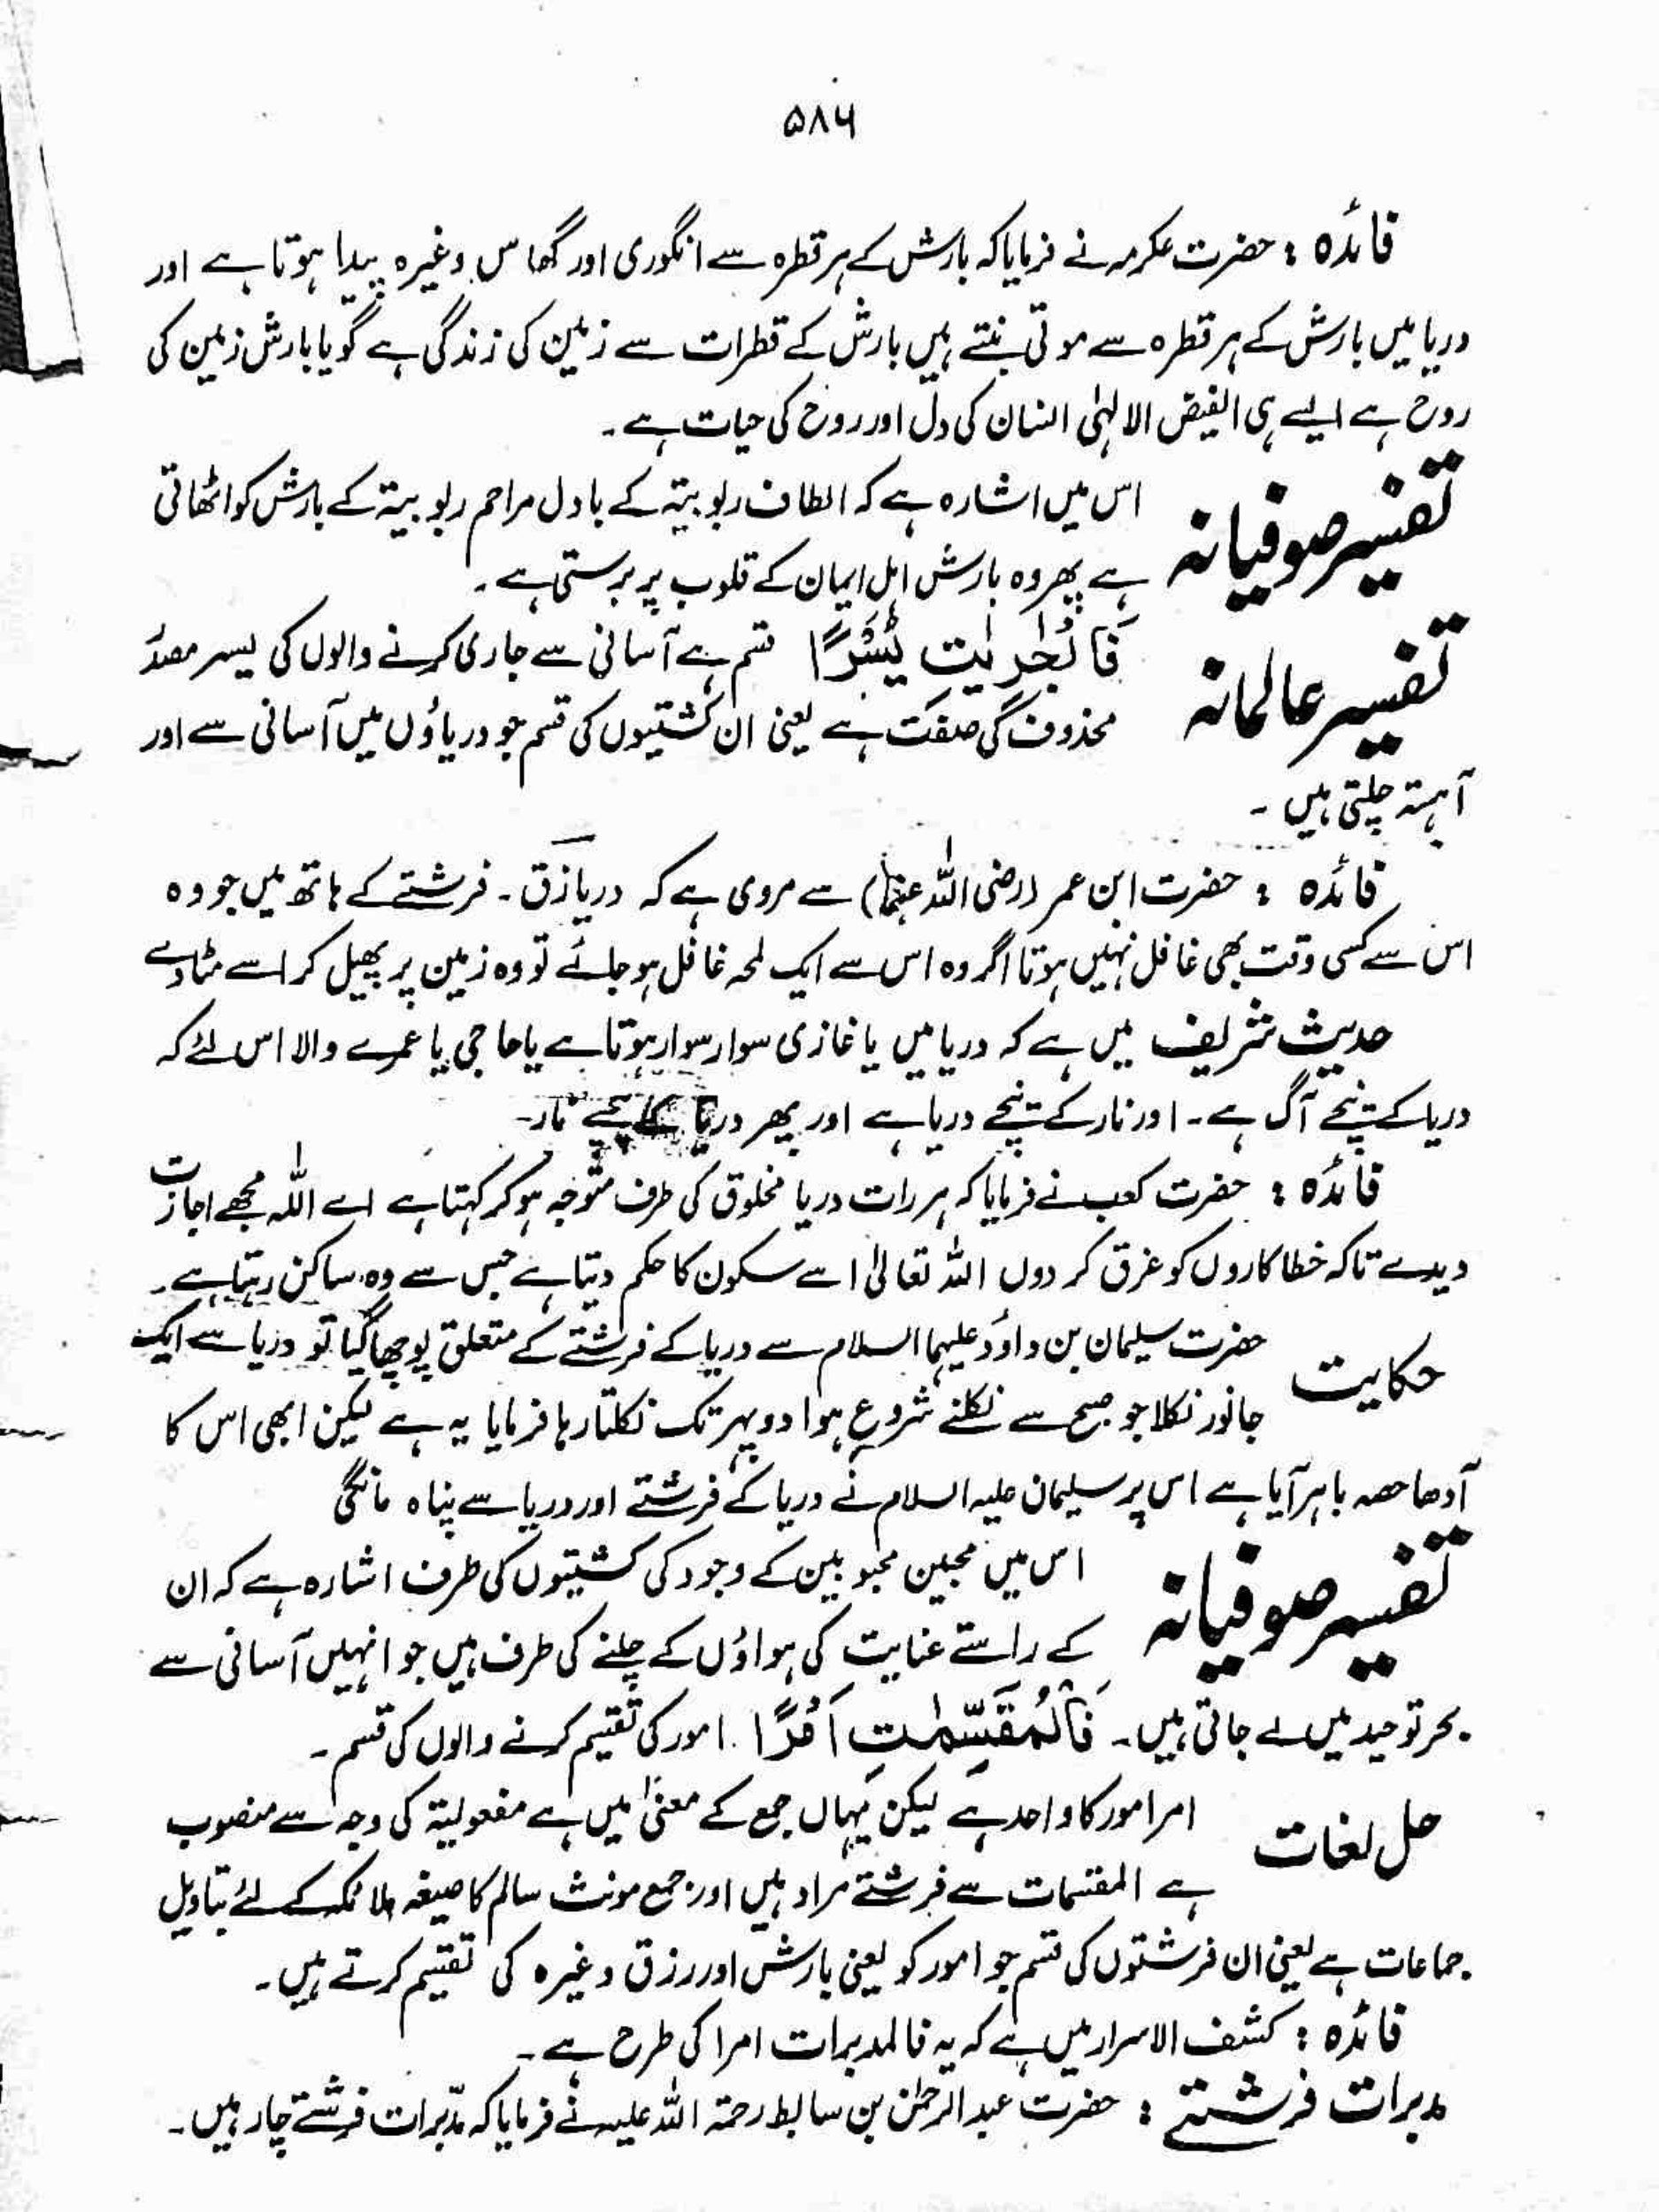 ۵۸۶
فائدہ : حضرت عکرمہ نے فرمایا کہ بارش کے ہر قطرہ سے انگوری اور گھاس وغیرہ پیدا ہوتا ہے اور
دریا میں بارش کے ہر قطرہ سے موتی بنتے ہیں بارش کے قطرات سے زمین کی زندگی ہے گویا بارش زمین کی
روح ہے ایسے ہی الفیض الالہٰی انسان کی دل اور روح کی حیات ہے ۔
تفسیر صوفیانہ اس میں اشارہ ہے کہ الطاف ربوبیۃ کے بادل مراحم ربوبیۃ کے بارش کو اٹھاتی
ہے پھر وہ بارش اہل ایمان کے قلوب پر برستی ہے ۔
تفسیر عالمانہ فَالْجٰرِیٰتِ یُسْرًا قسم ہے آسانی سے جاری کرنے والوں کی یسر مصدر
محذوف کی صفت ہے یعنی ان کشتیوں کی قسم جو دریاؤں میں آسانی سے اور
آہستہ چلتی ہیں ۔
فائدہ : حضرت ابن عمر (رضی اللہ عنہما) سے مروی ہے کہ دریا زق ۔ فرشتے کے ہاتھ میں جو وہ
اس سے کسی وقت بھی غافل نہیں ہوتا اگر وہ اس سے ایک لمحہ غافل ہو جائے تو وہ زمین پر پھیل کر اسے مٹادے
حدیث شریف میں ہے کہ دریا میں یا غازی سوار سوار ہوتا ہے یا حاجی یا عمرے والا اس لئے کہ
دریا کے نیچے آگ ہے ۔ اور نار کے نیچے دریا ہے اور پھر دریا کے نیچے نار ۔
فائدہ : حضرت کعب نے فرمایا کہ ہر رات دریا مخلوق کی طرف متوجہ ہو کر کہتا ہے اے اللہ مجھے اجازت
دیدے تاکہ خطا کاروں کو غرق کر دوں اللہ تعالیٰ اسے سکون کا حکم دیتا ہے جس سے وہ ساکن رہتا ہے ۔
حکایت حضرت سلیمان بن داؤد علیہما السلام سے دریا کے فرشتے کے متعلق پوچھا گیا تو دریا سے ایک
جانور نکلا جو صبح سے نکلنے شروع ہوا دوپہر تک نکلتا رہا فرمایا یہ ہے لیکن ابھی اس کا
آدھا حصہ باہر آیا ہے اس پر سلیمان علیہ السلام نے دریا کے فرشتے اور دریا سے پناہ مانگی
تفسیر صوفیانہ اس میں محبین محبوبین کے وجود کی کشتیوں کی طرف اشارہ ہے کہ ان
کے راستے عنایت کی ہواؤں کے چلنے کی طرف ہیں جو انہیں آسانی سے
بحر توحید میں لے جاتی ہیں ۔ فَالْمُقَسِّمٰتِ اَمْرًا امور کی تقسیم کرنے والوں کی قسم ۔
حل لغات امر امور کا واحد ہے لیکن یہاں جمع کے معنیٰ میں ہے مفعولیۃ کی وجہ سے منصوب
ہے المقسمات سے فرشتے مراد ہیں اور جمع مونث سالم کا صیغہ ملائکہ کے لئے بتاویل
جماعات ہے یعنی ان فرشتوں کی قسم جو امور کو یعنی بارش اور رزق وغیرہ کی تقسیم کرتے ہیں ۔
فائدہ : کشف الاسرار میں ہے کہ یہ فالمدبرات امرا کی طرح ہے ۔
مدبرات فرشتے : حضرت عبد الرحمٰن بن سابط رحمۃ اللہ علیہ نے فرمایا کہ مدّبرات فرشتے چار ہیں ۔